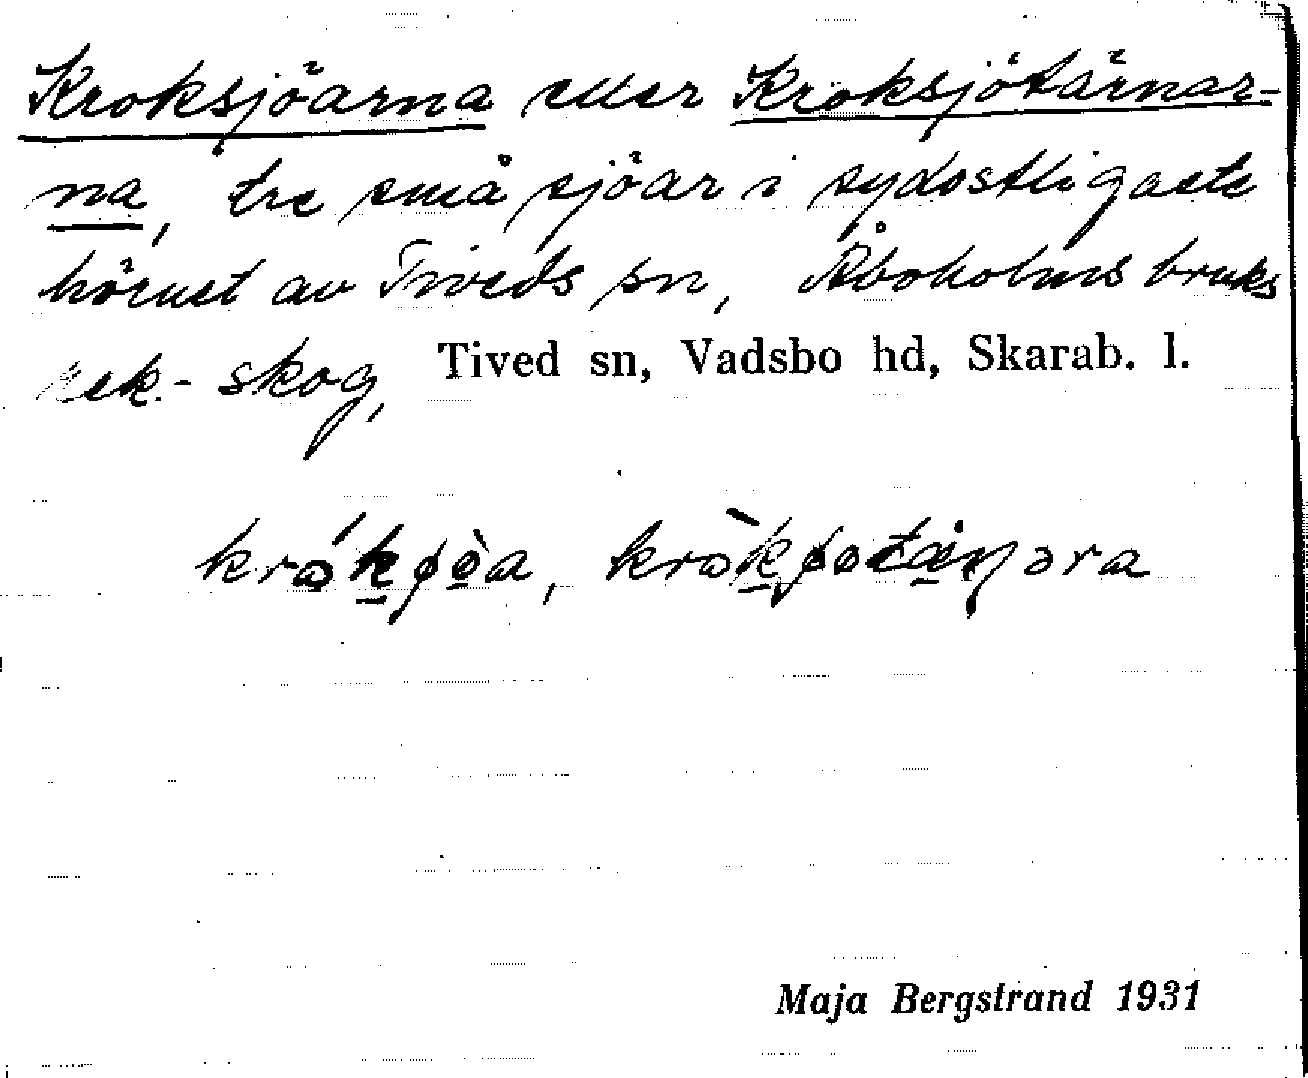 Kroksjöarna eller Kroksjötärnar-
na, tre små sjöar i sydostligaste
hörnet av Tiveds sn, Åboholms bruks
rek.- skog, Tived sn, Vadsbo hd, Skarab. l.
Maja Bergstrand 1931